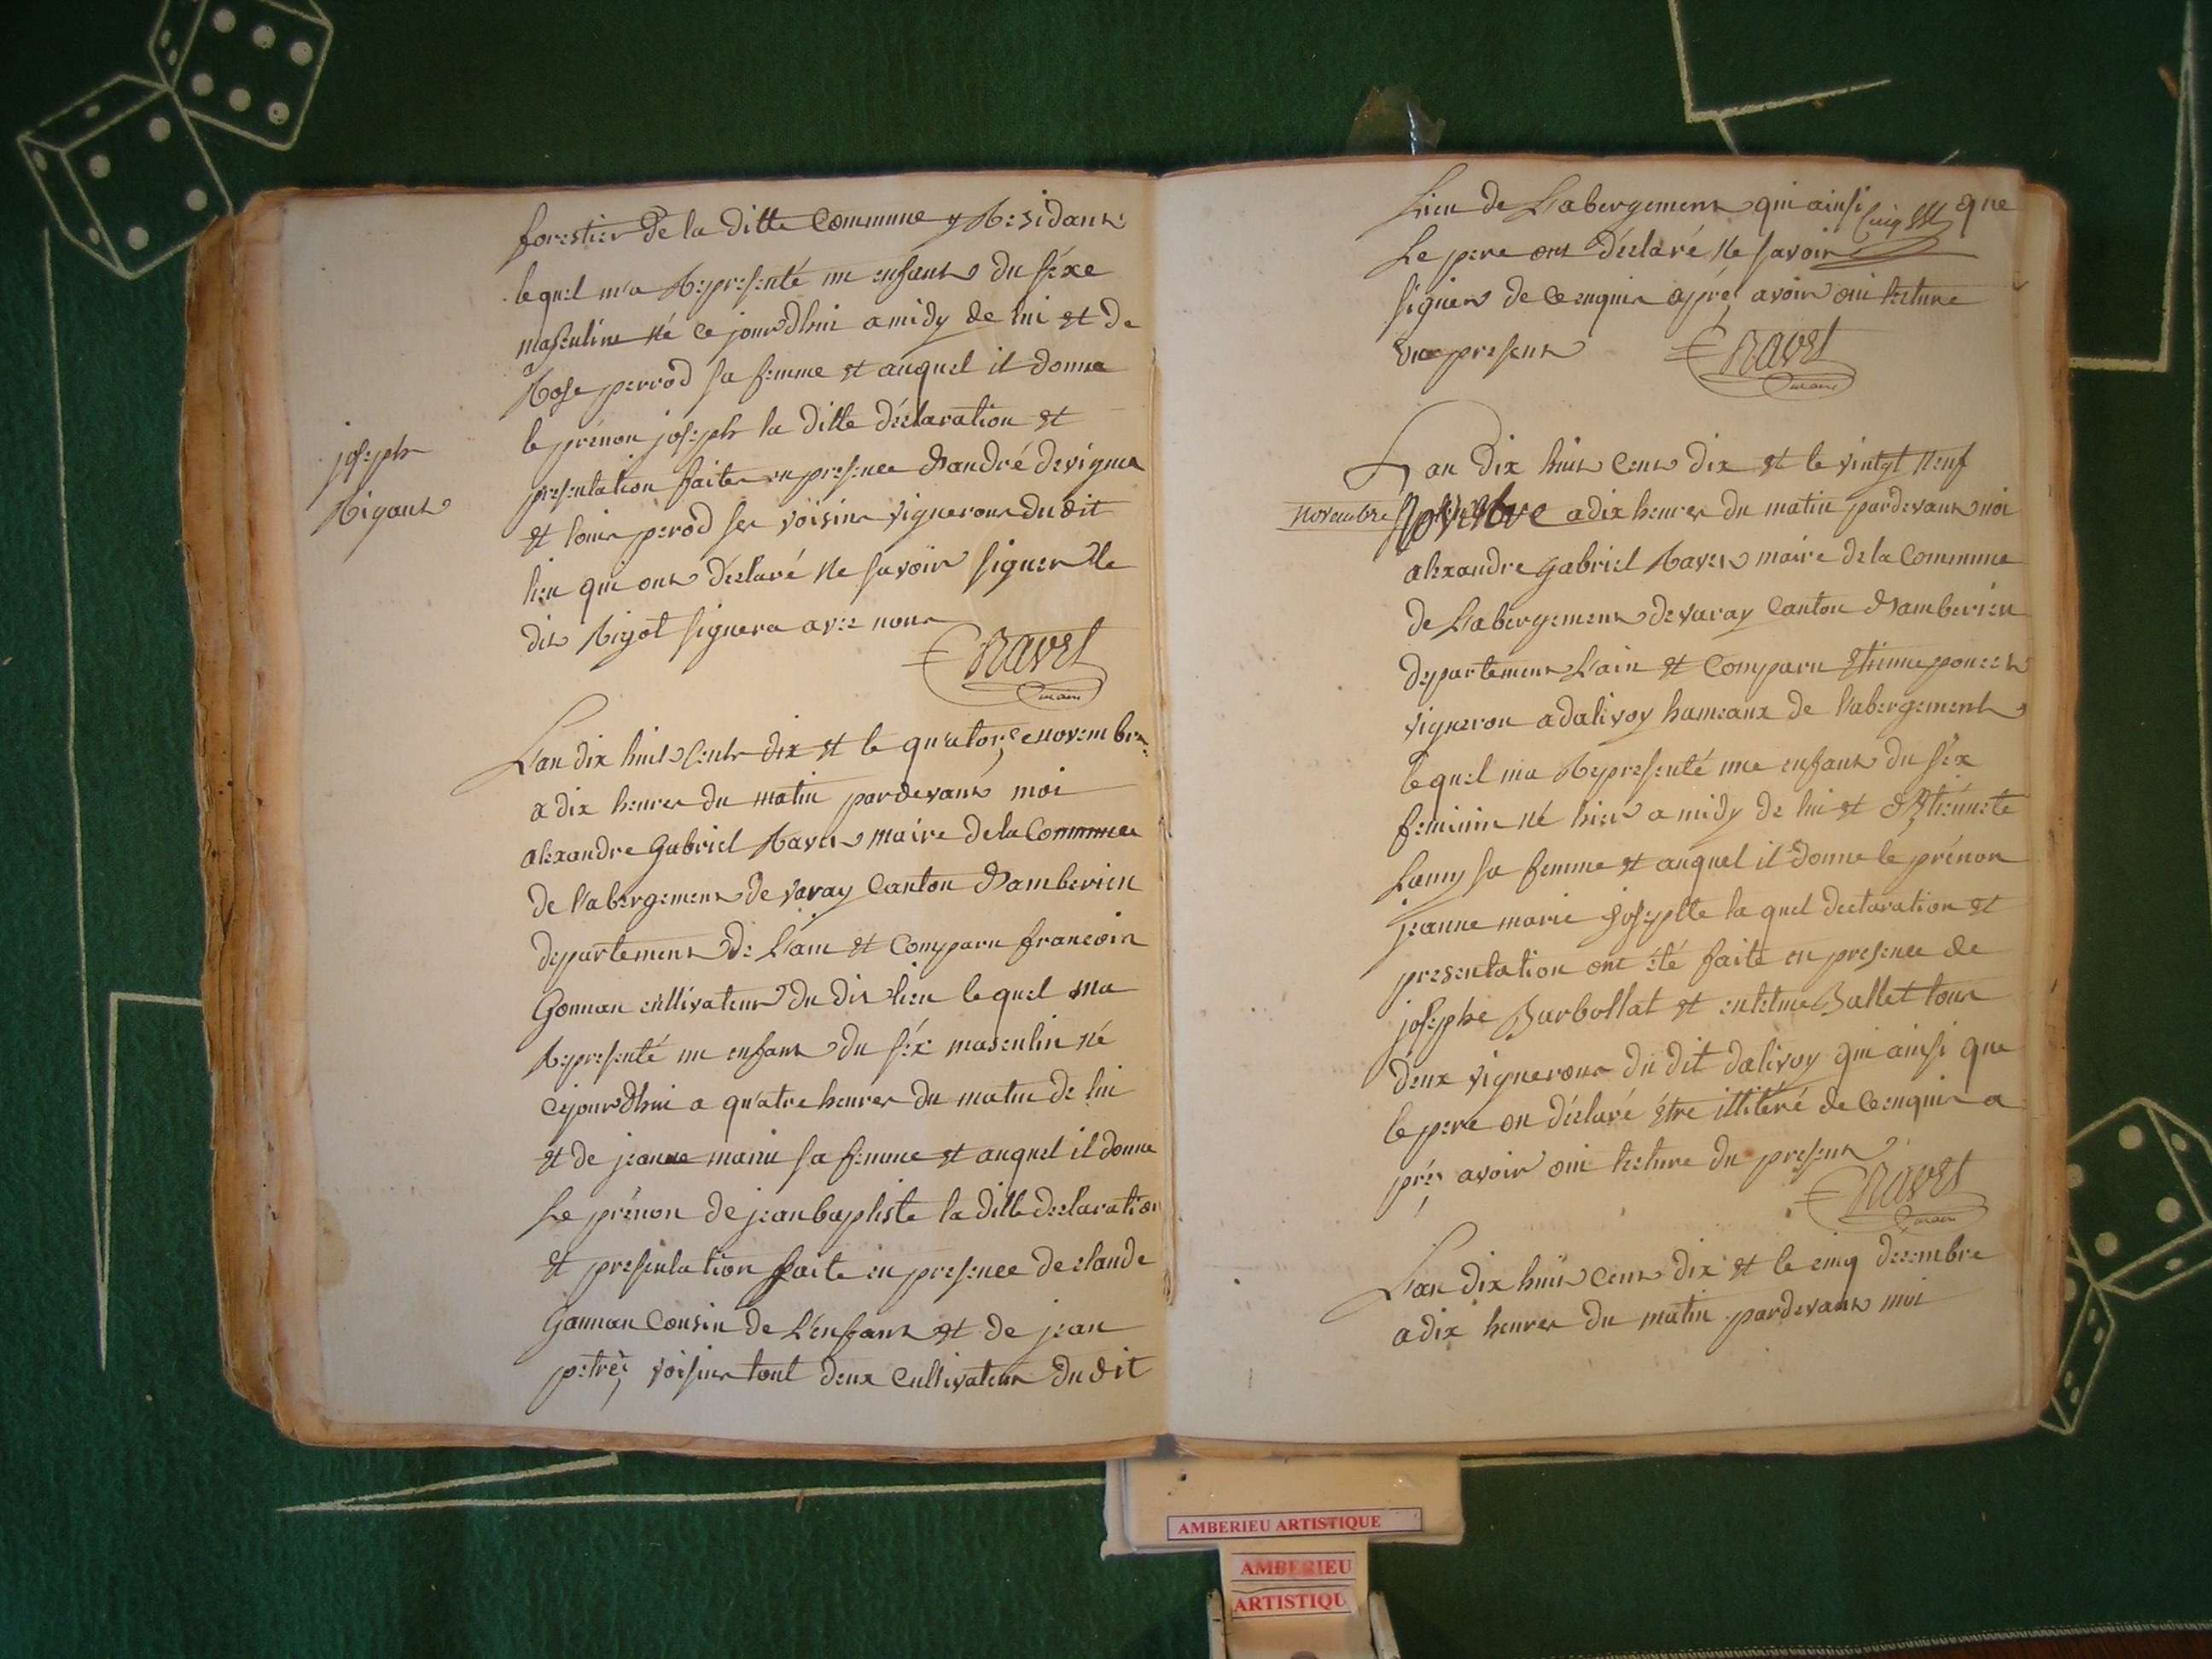 forestier de la ditte Commune y Residant
lequel m'a Representé un enfant du séxe
masculin né ce jourdhui a midy de lui et de
Rose perrod sa femme et auquel il donne
le prénon joseph la ditte déclaration et
joseph
Rigaut
presentation faite en presence d'andré devigne
et louis perod ses voisins vignerons du dit
lieu qui ont déclaré ne savoir signer le
dit Rigot signera avec nous
Ravet
maire
L'an dix huit cents dix et le quatorze novembre
a dix heures du matin pardevant moi
alexandre Gabriel Ravet maire de la Commune
de l'abergement de varay Canton d'amberieu
departement de L'ain et Comparu francois
Gonnan cultivateur du dit lieu lequel ma
Representé un enfant du séx masculin né
cejourdhui a quatre heures du matin de lui
et de jeanne sa femme et auquel il donne
Le prénon de jean baptiste la ditte declaration
et presentation faite en presence de claude
Gannan Cousin de L'enfant et de jean
voisins tout deux Cultivateur du dit
Lieu de Labergement qui ainsi que
Le pere ont déclaré ne savoir
signer de ce enquis aprés avoir oui lecture
present
Ravet
maire
L'an dix huit cent dix et le vintgt neuf
novembre Novembre a dix heures du matin pardevant moi
alexandre gabriel Ravet maire de la Commune
de Labergement de varay Canton d'amberieu
departement L'ain et Comparu Etienne poncet
vigneron a dalivoy hameaux de l'abergement
lequel ma Representé une enfant du séx
feminin né hier a midy de lui et d'Etiénnete
Lamy sa femme et auquel il donne le prénon
jeanne marie josephte la quel declaration et
presentation ont été faite en presence de
josephe Barbollat et entelme Ballet tous
deux vignerons du dit dalivoy qui ainsi que
le pere on déclaré étre illitéré de ce enquis a
prés avoir oui lecture du present
Ravet
maire
L'an dix huit cent dix et le cinq décembre
a dix heures du matin pardevant moi
AMBERIEU ARTISTIQUE
AMBERIEU
ARTISTIQU